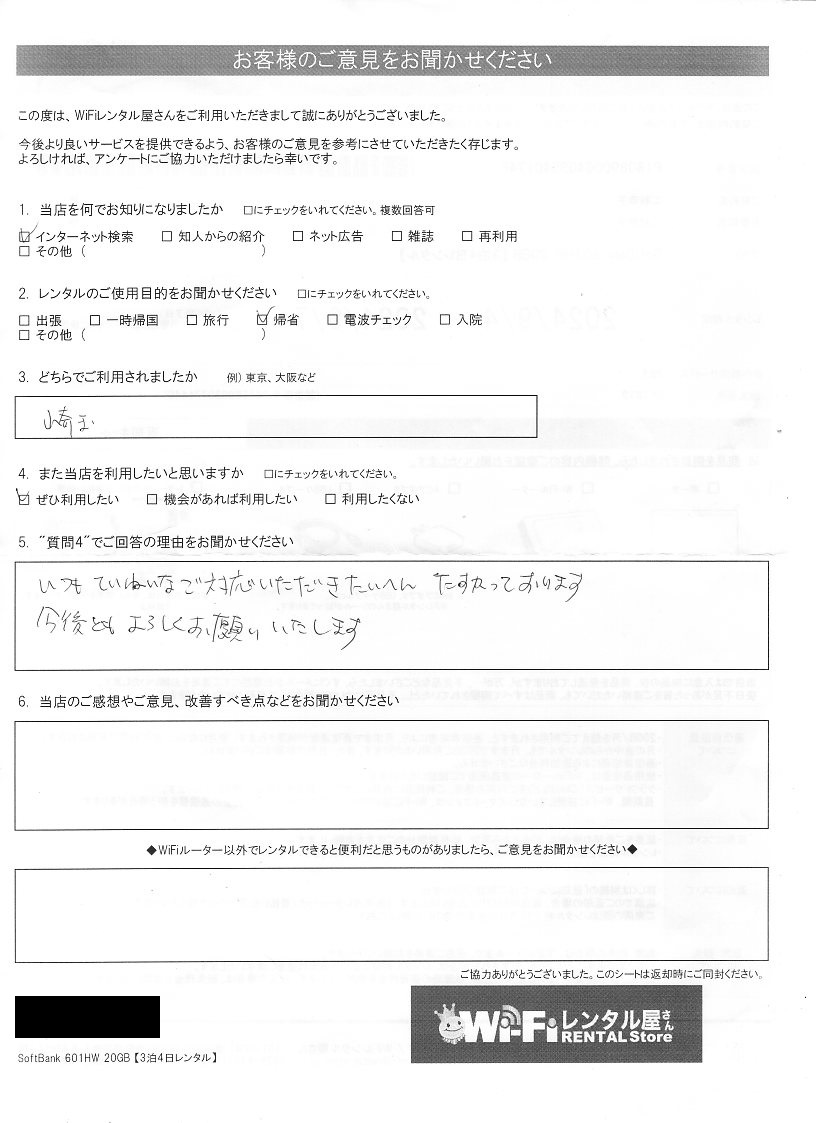 お客様のご意見をお聞かせください
この度は、WiFiレンタル屋さんをご利用いただきまして誠にありがとうございました。
今後より良いサービスを提供できるよう、お客様のご意見を参考にさせていただきたく存じます。
よろしければ、アンケートにご協力いただけましたら幸いです。
1. 当店を何でお知りになりましたか □にチェックをいれてください。複数回答可
☑ インターネット検索 □ 知人からの紹介 □ ネット広告 □ 雑誌 □ 再利用
□ その他 ( )
2. レンタルのご使用目的をお聞かせください □にチェックをいれてください。
□ 出張 □ 一時帰国 □ 旅行 ☑ 帰省 □ 電波チェック □ 入院
□ その他 ( )
3. どちらでご利用されましたか 例) 東京、大阪など
埼玉
4. また当店を利用したいと思いますか □にチェックをいれてください。
☑ ぜひ利用したい □ 機会があれば利用したい □ 利用したくない
5. "質問4"でご回答の理由をお聞かせください
いつもていねいなご対応いただきたいへん たすかっております
今後ともよろしくお願いいたします
6. 当店のご感想やご意見、改善すべき点などをお聞かせください
◆WiFiルーター以外でレンタルできると便利だと思うものがありましたら、ご意見をお聞かせください◆
ご協力ありがとうございました。このシートは返却時にご同封ください。
Wi-Fiレンタル屋さん
RENTAL Store
SoftBank 601HW 20GB【3泊4日レンタル】